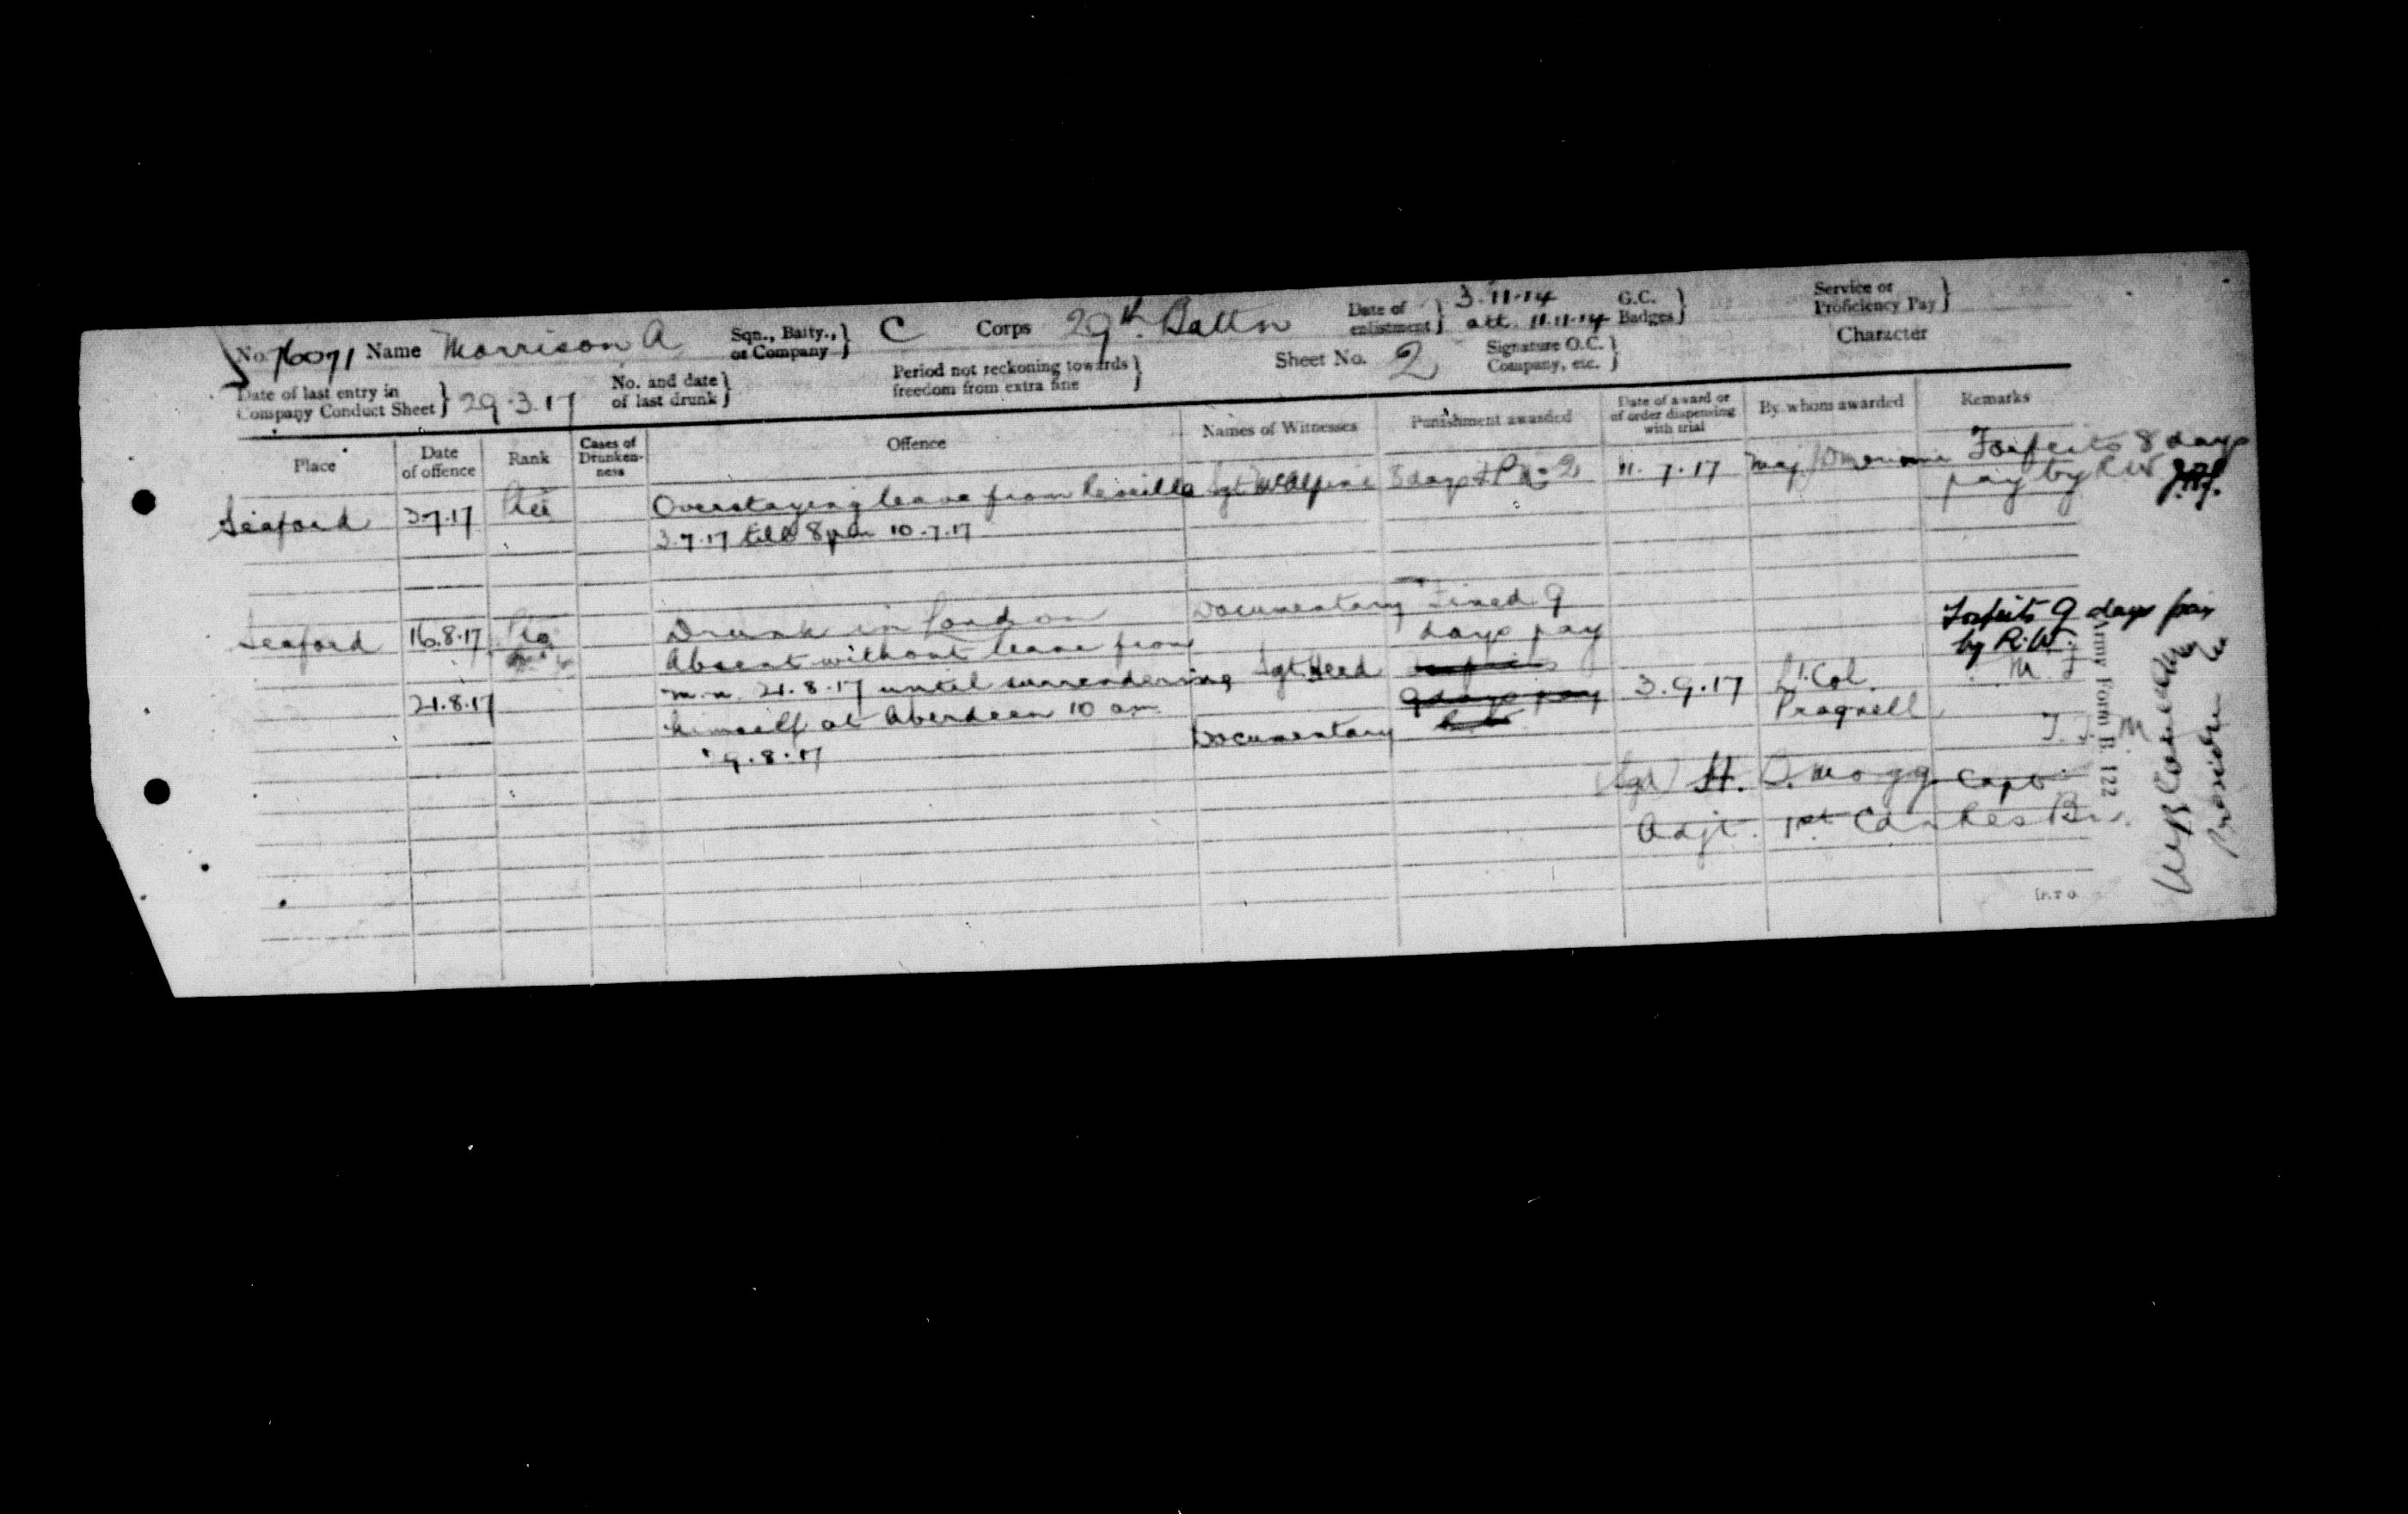 No. 76071 Name Morrison A Sqn., Batty., or Company } C Corps 29th Battn Date of enlistment } 3.11.14 att. 11.11.14 G.C. Badges } Service or Proficiency Pay }
Date of last entry in Company Conduct Sheet } 29.3.17 No. and date of last drunk } Period not reckoning towards freedom from extra fine } Sheet No. 2 Signature O.C. Company, etc. } Character
Place Date of offence Rank Cases of Drunkenness Offence Names of Witnesses Punishment awarded Date of award or of order dispensing with trial By whom awarded Remarks
Seaford 3.7.17 Pte Overstaying leave from Reveille Sgt McAlpine 8 days F.P. No 2 11.7.17 Maj. Forfeits 8 days
3.7.17 till 8 pm 10.7.17 pay by R.W.
Seaford 16.8.17 Pte Drunk in London Documentary Fined 9 days pay Forfeits 9 days pay by R.W.
21.8.17 Absent without leave from
m.n. 21.8.17 until surrendering Sgt Heed 9 days pay 3.9.17 Lt. Col. Pragnell
himself at Aberdeen 10 am
9.8.17 Documentary
T. J. M
H. Mogg Capt
Adjt. 1st Bn.
Army Form B. 122
(P.T.O.